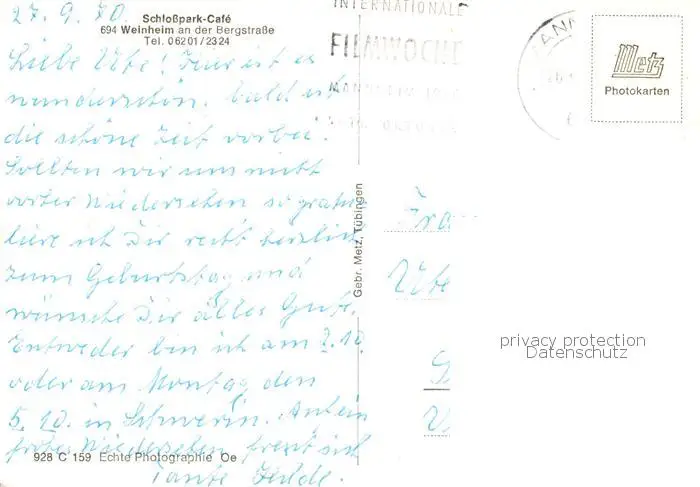 27. 9. 70.
Schloßpark-Café
694 Weinheim an der Bergstraße
Tel. 06201/2324
Liebe Ute! Hier ist es
wunderschön. bald ist
die schöne Zeit vorbei.
Sollten wir uns nicht
vorher Wiedersehen so gratu
liere ich Dir recht herzlich
zum Geburtstag und
wünsche Dir alles Gute.
Entweder bin ich am 2.10.
oder am Montag den
5. 10. in Schwerin. Auf ein
frohes Wiedersehen freut sich
Tante Hilde.
928 C 159 Echte Photographie Oe
Gebr. Metz, Tübingen
INTERNATIONALE
FILMWOCHE
MANNHEIM
Metz
Photokarten
Fra
Ute
privacy protection
Datenschutz